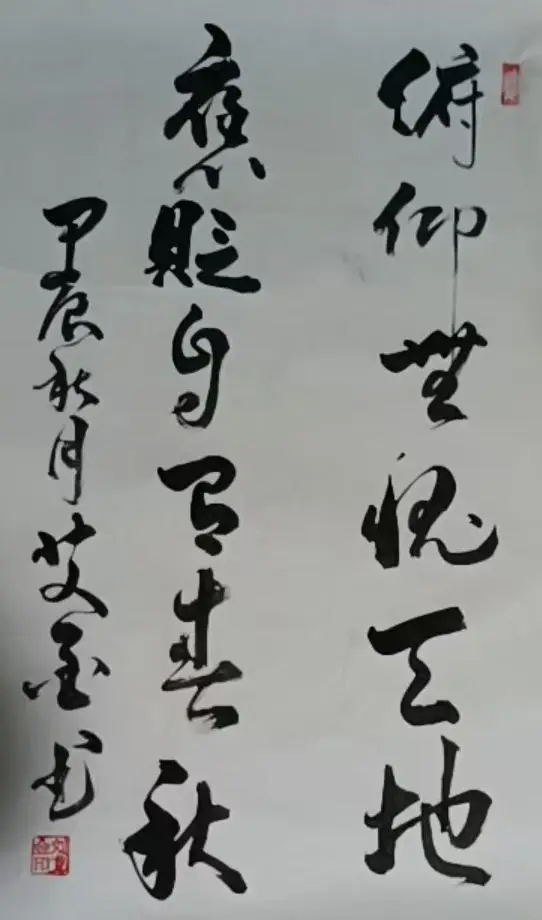 俯仰無愧天地
褒貶自有春秋
甲辰秋月艾金书